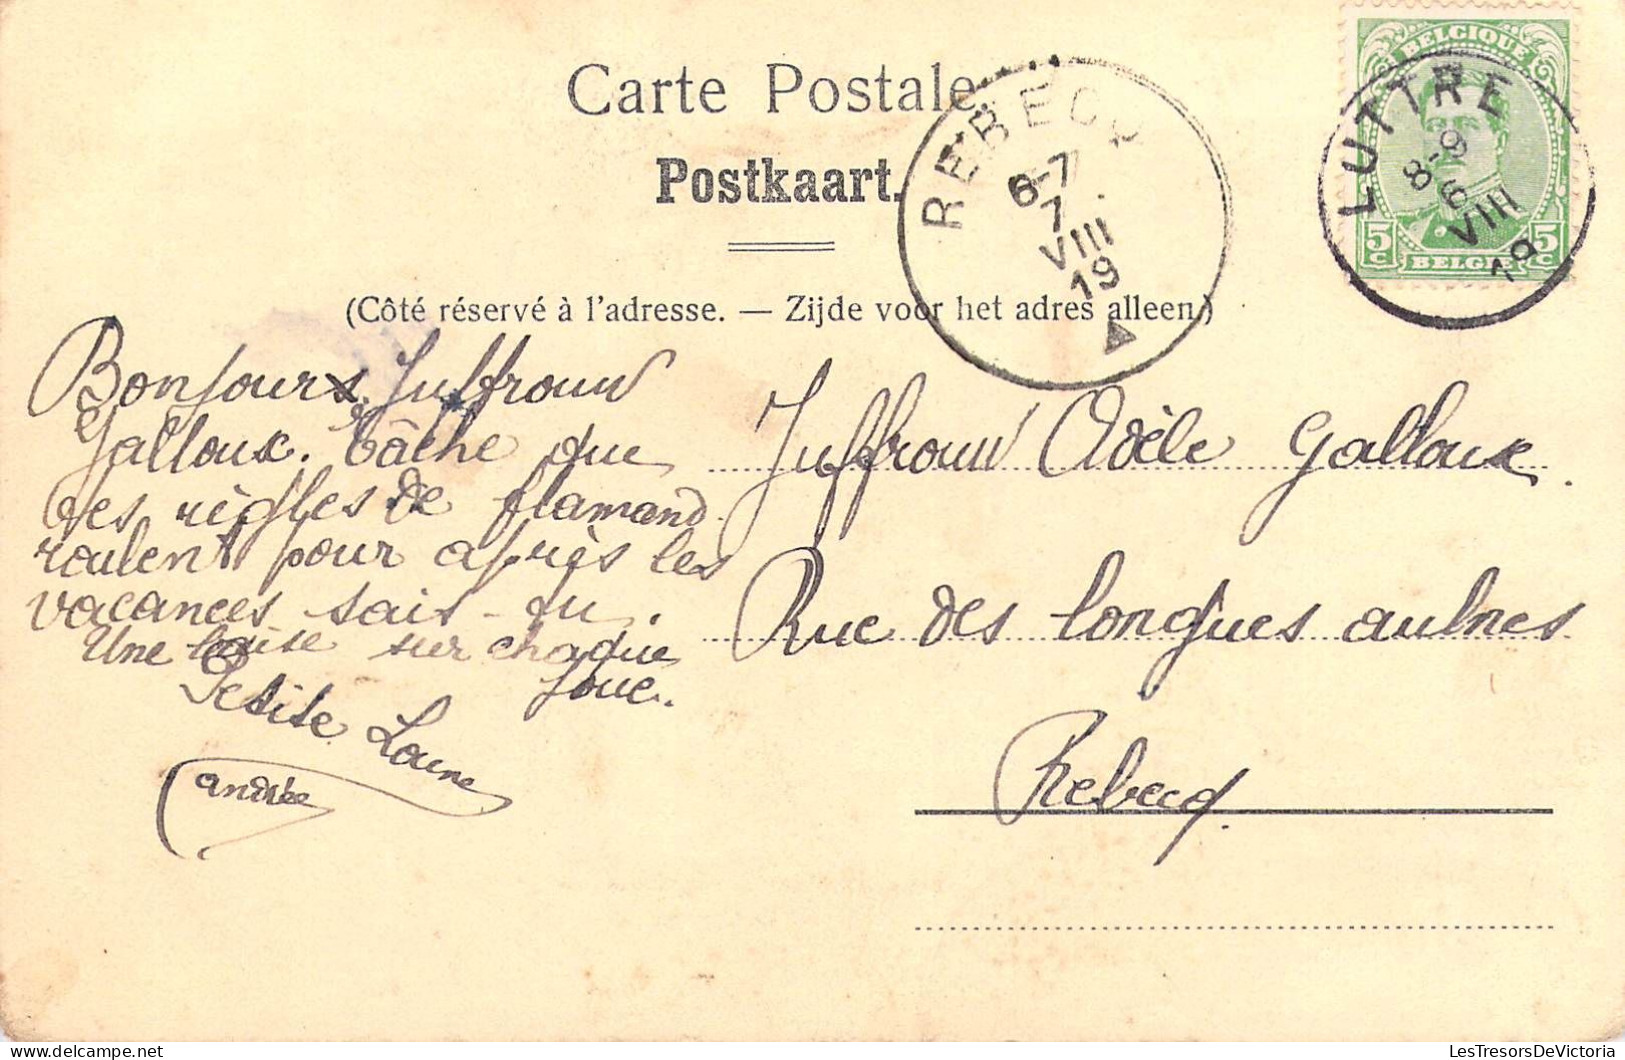 Carte Postale
Postkaart.
(Côté réservé à l'adresse. — Zijde voor het adres alleen.)
BELGIQUE
5 C
5 C
BELGIË
LUTTRE
8-9
6
VIII
19
REBECQ
6-7
7
VIII
19
Bonjour Juffrouw
Galloux. tâche que
tes règles de flamand
roulent pour après les
vacances sais-tu.
Une baise sur chaque
joue.
Petite Loune
andrée
Juffrouw Adèle Galloux.
Rue des longues aulnes
Rebecq.
LesTresorsDeVictoria